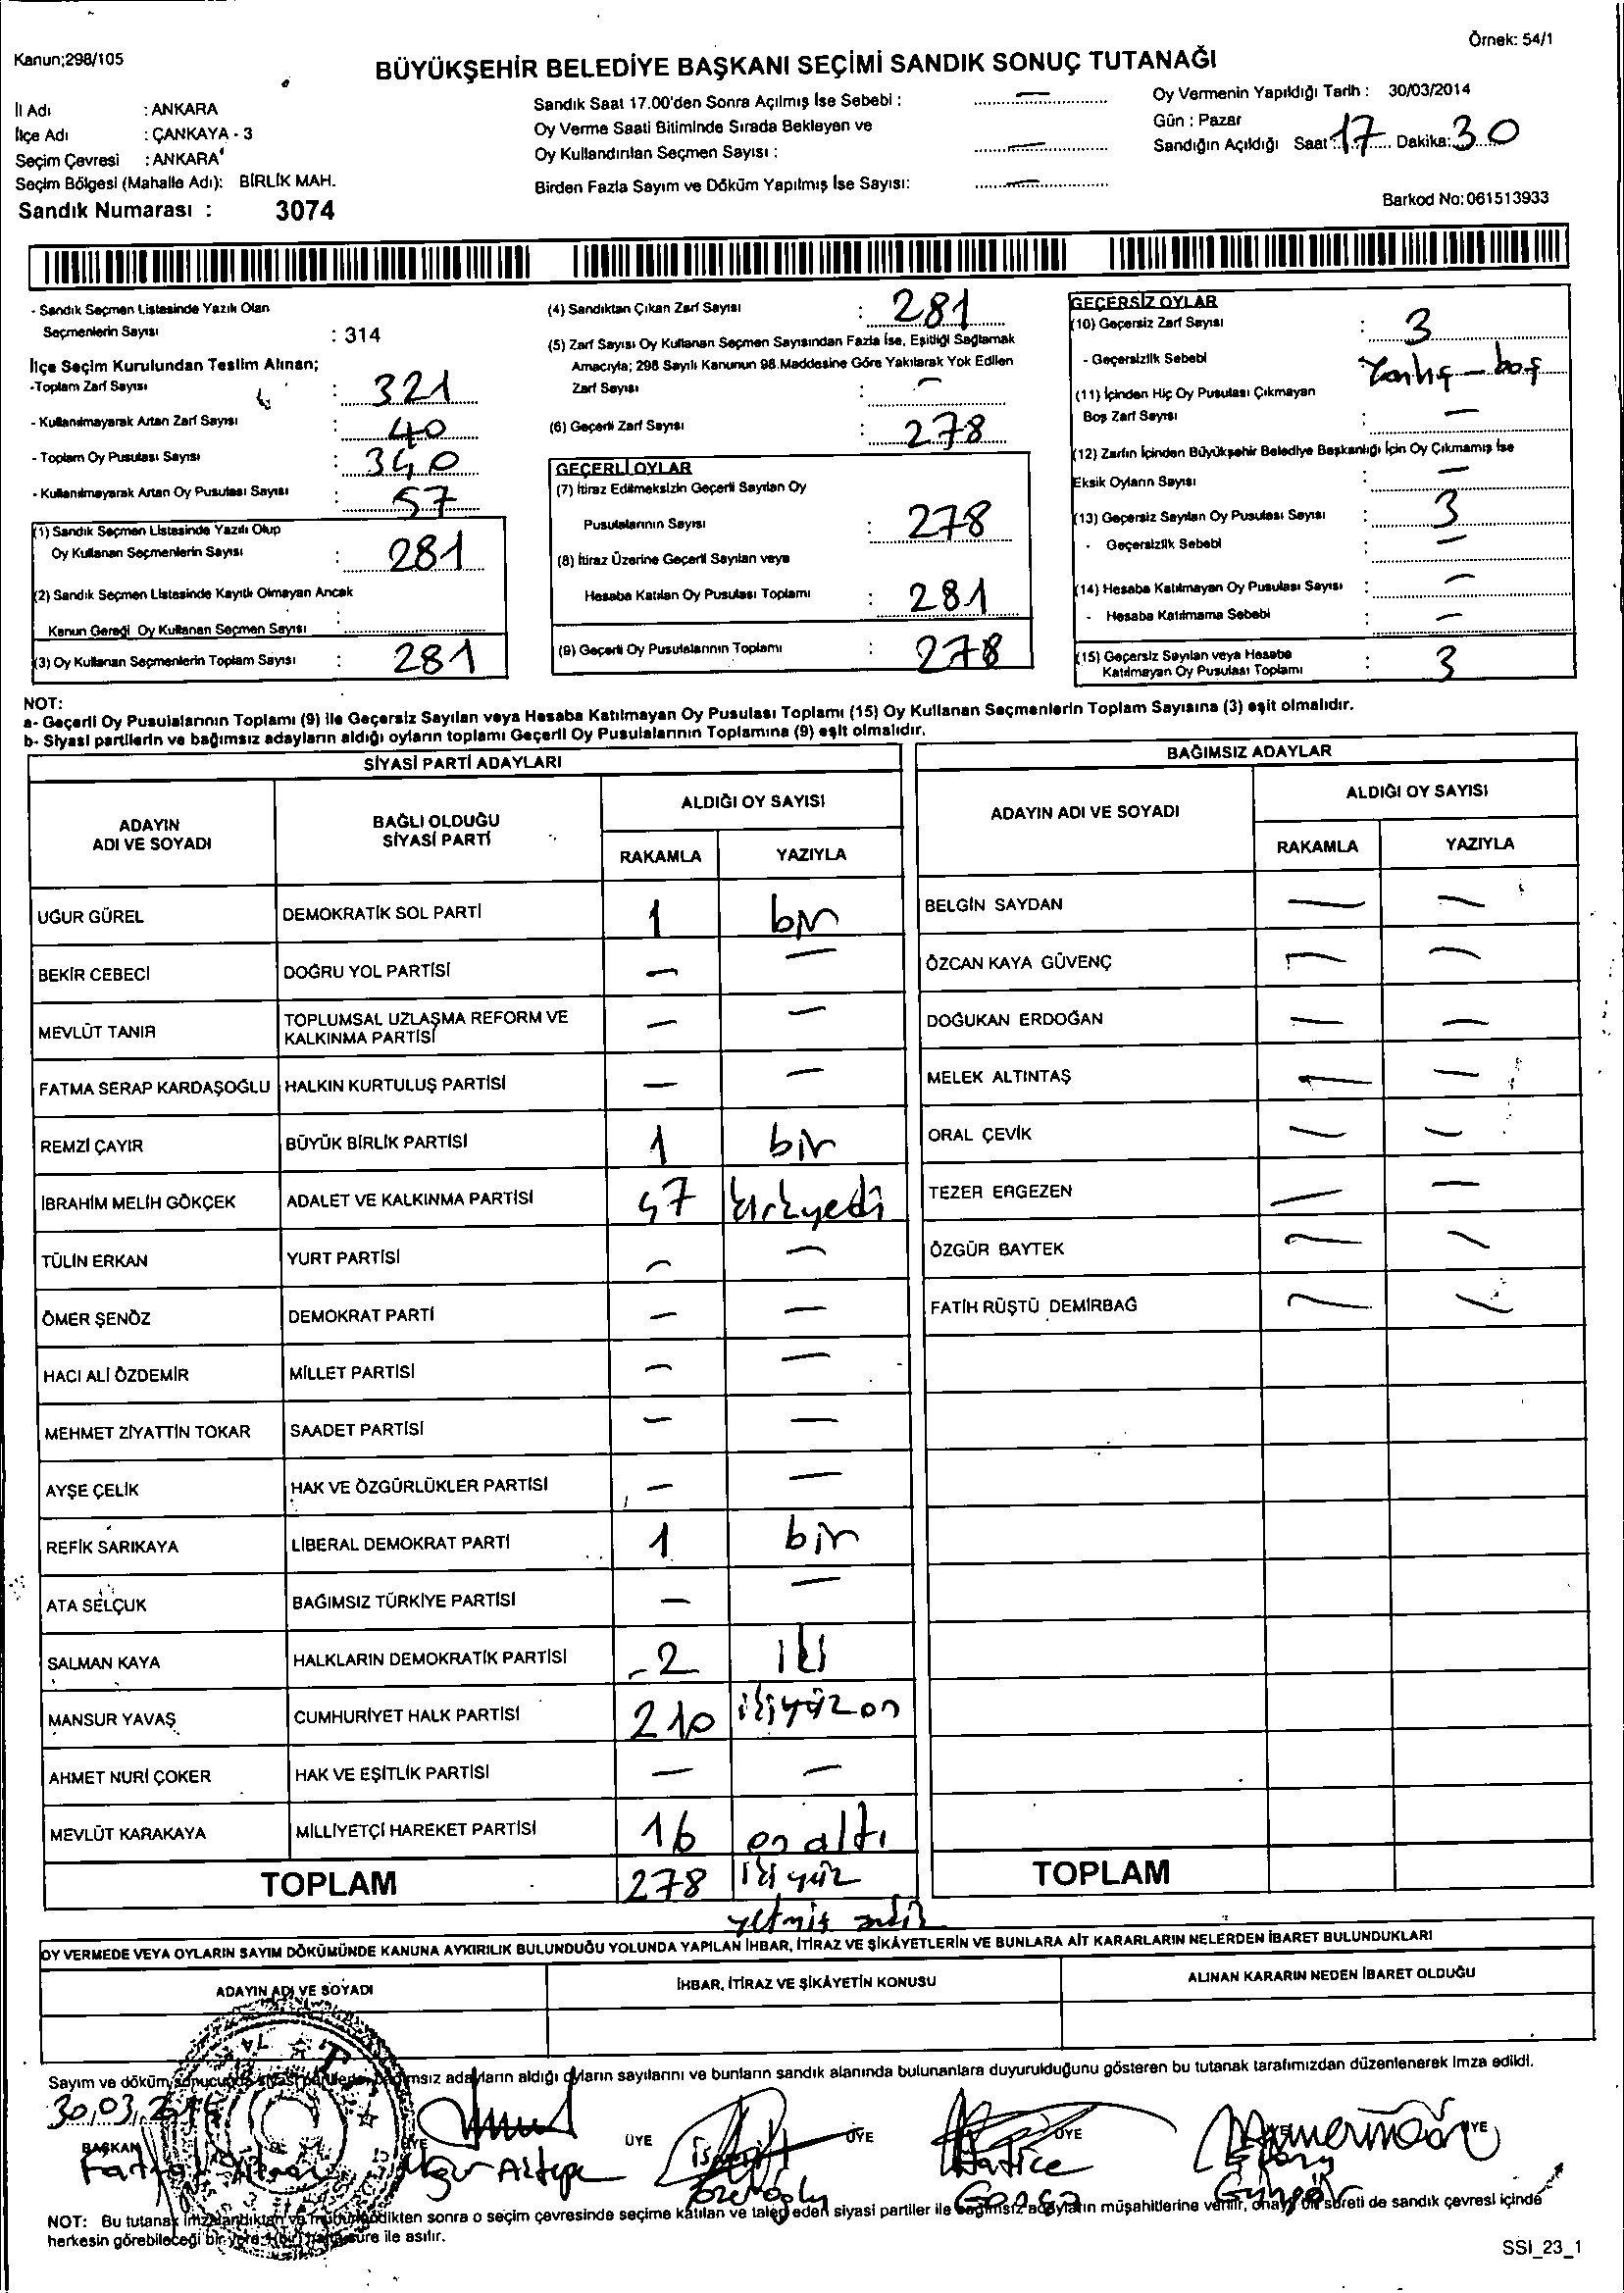 Örnek: 54/1
Kanun;298/105
BÜYÜKŞEHİR BELEDİYE BAŞKANI SEÇİMİ SANDIK SONUÇ TUTANAĞI
İl Adı : ANKARA
İlçe Adı : ÇANKAYA - 3
Seçim Çevresi : ANKARA
Seçim Bölgesi (Mahalle Adı): BİRLİK MAH.
Sandık Numarası : 3074
Sandık Saat 17.00'den Sonra Açılmış İse Sebebi : —
Oy Verme Saati Bitiminde Sırada Bekleyen ve
Oy Kullandırılan Seçmen Sayısı : —
Birden Fazla Sayım ve Döküm Yapılmış İse Sayısı: —
Oy Vermenin Yapıldığı Tarih : 30/03/2014
Gün : Pazar
Sandığın Açıldığı Saat : 17 Dakika: 30
Barkod No: 061513933
- Sandık Seçmen Listesinde Yazılı Olan
Seçmenlerin Sayısı : 314
İlçe Seçim Kurulundan Teslim Alınan;
-Toplam Zarf Sayısı : 321
- Kullanılmayarak Artan Zarf Sayısı : 40
- Toplam Oy Pusulası Sayısı : 340
- Kullanılmayarak Artan Oy Pusulası Sayısı : 57
(1) Sandık Seçmen Listesinde Yazılı Olup
Oy Kullanan Seçmenlerin Sayısı : 281
(2) Sandık Seçmen Listesinde Kayıtlı Olmayan Ancak
Kanun Gereği Oy Kullanan Seçmen Sayısı :
(3) Oy Kullanan Seçmenlerin Toplam Sayısı : 281
(4) Sandıktan Çıkan Zarf Sayısı : 281
(5) Zarf Sayısı Oy Kullanan Seçmen Sayısından Fazla İse, Eşitliği Sağlamak
Amacıyla; 298 Sayılı Kanunun 98.Maddesine Göre Yakılarak Yok Edilen
Zarf Sayısı : —
(6) Geçerli Zarf Sayısı : 278
GEÇERLİ OYLAR
(7) İtiraz Edilmeksizin Geçerli Sayılan Oy
Pusulalarının Sayısı : 278
(8) İtiraz Üzerine Geçerli Sayılan veya
Hesaba Katılan Oy Pusulası Toplamı : 281
(9) Geçerli Oy Pusulalarının Toplamı : 278
GEÇERSİZ OYLAR
(10) Geçersiz Zarf Sayısı : 3
- Geçersizlik Sebebi : Yanlış - boş
(11) İçinden Hiç Oy Pusulası Çıkmayan
Boş Zarf Sayısı : —
(12) Zarfın İçinden Büyükşehir Belediye Başkanlığı İçin Oy Çıkmamış İse
Eksik Oyların Sayısı : —
(13) Geçersiz Sayılan Oy Pusulası Sayısı : 3
- Geçersizlik Sebebi : —
(14) Hesaba Katılmayan Oy Pusulası Sayısı : —
- Hesaba Katılmama Sebebi : —
(15) Geçersiz Sayılan veya Hesaba
Katılmayan Oy Pusulası Toplamı : 3
NOT:
a- Geçerli Oy Pusulalarının Toplamı (9) ile Geçersiz Sayılan veya Hesaba Katılmayan Oy Pusulası Toplamı (15) Oy Kullanan Seçmenlerin Toplam Sayısına (3) eşit olmalıdır.
b- Siyasi partilerin ve bağımsız adayların aldığı oyların toplamı Geçerli Oy Pusulalarının Toplamına (9) eşit olmalıdır.
SİYASİ PARTİ ADAYLARI
ADAYIN ADI VE SOYADI BAĞLI OLDUĞU SİYASİ PARTİ ALDIĞI OY SAYISI
RAKAMLA YAZIYLA
UĞUR GÜREL DEMOKRATİK SOL PARTİ 1 bir
BEKİR CEBECİ DOĞRU YOL PARTİSİ — —
MEVLÜT TANIR TOPLUMSAL UZLAŞMA REFORM VE KALKINMA PARTİSİ — —
FATMA SERAP KARDAŞOĞLU HALKIN KURTULUŞ PARTİSİ — —
REMZİ ÇAYIR BÜYÜK BİRLİK PARTİSİ 1 bir
İBRAHİM MELİH GÖKÇEK ADALET VE KALKINMA PARTİSİ 47 kırkyedi
TÜLİN ERKAN YURT PARTİSİ — —
ÖMER ŞENÖZ DEMOKRAT PARTİ — —
HACI ALİ ÖZDEMİR MİLLET PARTİSİ — —
MEHMET ZİYATTİN TOKAR SAADET PARTİSİ — —
AYŞE ÇELİK HAK VE ÖZGÜRLÜKLER PARTİSİ — —
REFİK SARIKAYA LİBERAL DEMOKRAT PARTİ 1 bir
ATA SELÇUK BAĞIMSIZ TÜRKİYE PARTİSİ — —
SALMAN KAYA HALKLARIN DEMOKRATİK PARTİSİ 2 iki
MANSUR YAVAŞ CUMHURİYET HALK PARTİSİ 210 ikiyüzon
AHMET NURİ ÇOKER HAK VE EŞİTLİK PARTİSİ — —
MEVLÜT KARAKAYA MİLLİYETÇİ HAREKET PARTİSİ 16 onaltı
TOPLAM 278 ikiyüz
yetmiş sekiz
BAĞIMSIZ ADAYLAR
ADAYIN ADI VE SOYADI ALDIĞI OY SAYISI
RAKAMLA YAZIYLA
BELGİN SAYDAN — —
ÖZCAN KAYA GÜVENÇ — —
DOĞUKAN ERDOĞAN — —
MELEK ALTINTAŞ — —
ORAL ÇEVİK — —
TEZER ERGEZEN — —
ÖZGÜR BAYTEK — —
FATİH RÜŞTÜ DEMİRBAĞ — —
TOPLAM
OY VERMEDE VEYA OYLARIN SAYIM DÖKÜMÜNDE KANUNA AYKIRILIK BULUNDUĞU YOLUNDA YAPILAN İHBAR, İTİRAZ VE ŞİKÂYETLERİN VE BUNLARA AİT KARARLARIN NELERDEN İBARET BULUNDUKLARI
ADAYIN ADI VE SOYADI İHBAR, İTİRAZ VE ŞİKÂYETİN KONUSU ALINAN KARARIN NEDEN İBARET OLDUĞU
Sayım ve döküm sonucunda siyasi partilerle, bağımsız adayların aldığı oyların sayılarını ve bunların sandık alanında bulunanlara duyurulduğunu gösteren bu tutanak tarafımızdan düzenlenerek imza edildi.
30,03,2014
BAŞKAN ÜYE ÜYE ÜYE ÜYE ÜYE
Uğur Altepe
Hatice
Gonca
Güngör
NOT: Bu tutanak imzalandıktan ve mühürlendikten sonra o seçim çevresinde seçime katılan ve talep eden siyasi partiler ile bağımsız adayların müşahitlerine verilir, onaylı bir sureti de sandık çevresi içinde
herkesin görebileceği bir yere 1 (bir) hafta süre ile asılır.
SSI_23_1